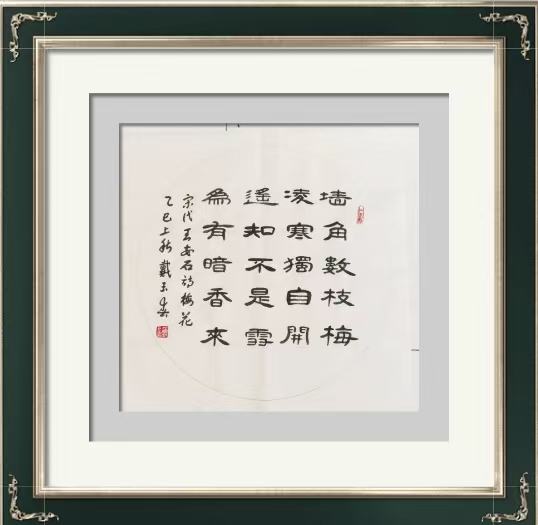 墙角數枝梅
凌寒獨自開
遥知不是雪
為有暗香來
宋代王安石詩梅花
乙巳上秋戴玉